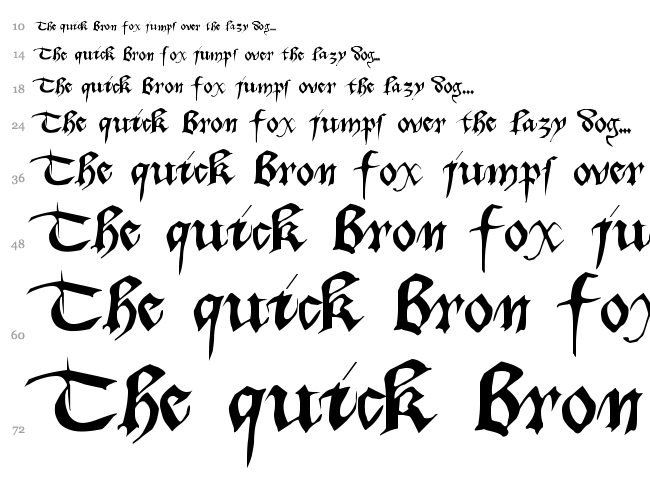 10 The quick Bron fox jumps over the lazy dog...
14 The quick Bron fox jumps over the lazy dog...
18 The quick Bron fox jumps over the lazy dog...
24 The quick Bron fox jumps over the lazy dog...
36 The quick Bron fox jumps over
48 The quick Bron fox ju
60 The quick Bron fox
72 The quick Bron